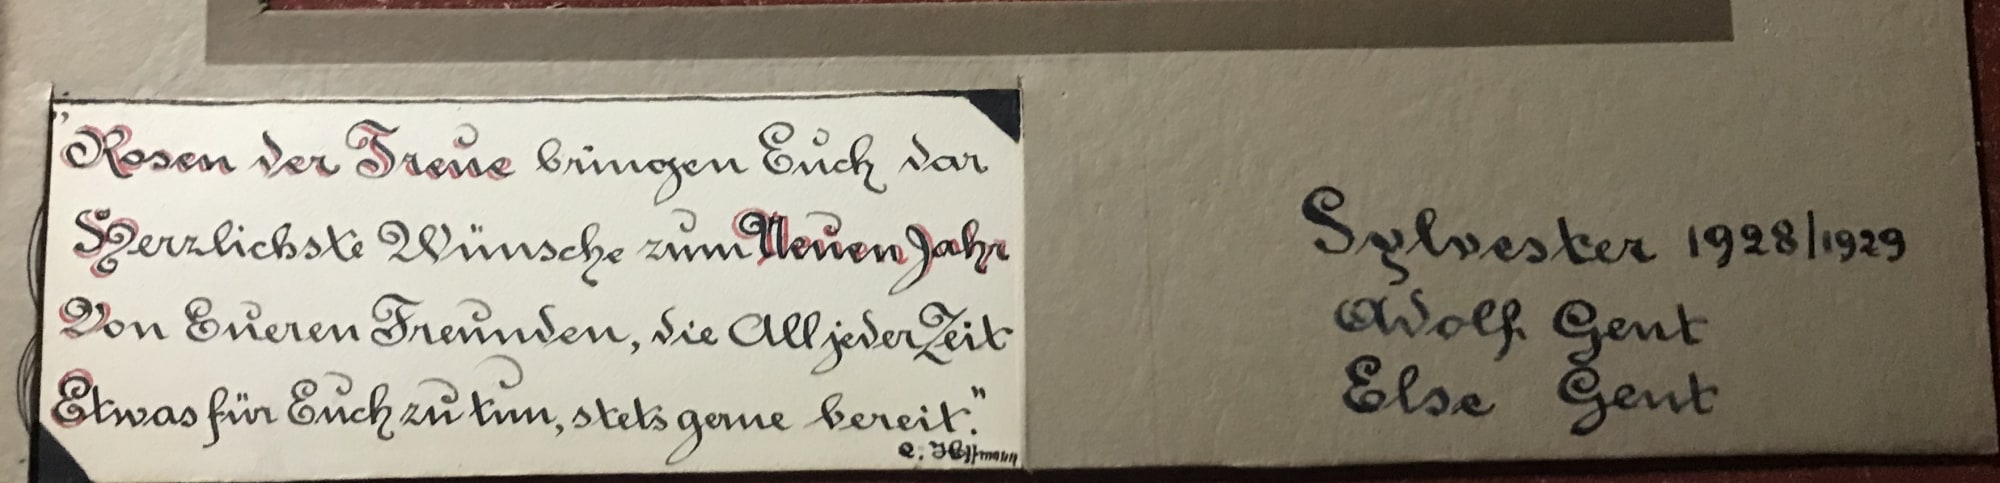 „Rosen der Treue bringen Euch dar
Herzlichste Wünsche zum Neuen Jahr
Von Eueren Freunden, die All jeder Zeit
Etwas für Euch zu tun, stets gerne bereit."
Sylvester 1928/1929
Adolf Gent
Else Gent